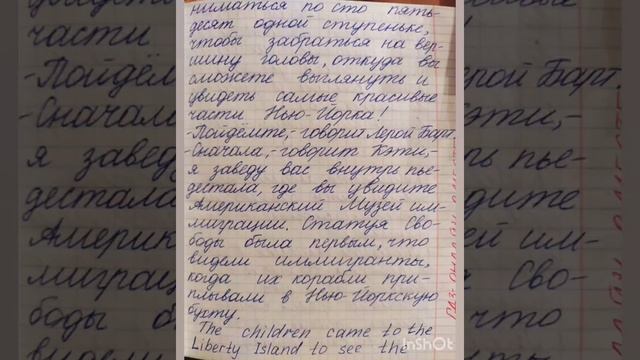 ниматься по сто пять-
десят одной ступеньке,
чтобы забраться на вер-
шину головы, откуда вы
сможете выглянуть и
увидеть самые красивые
части Нью-Йорка!
-Пойдёмте,- говорит Лерой Барт.
-Сначала,- говорит Кэти,-
я заведу вас внутрь пье-
дестала, где вы увидите
Американский Музей им-
миграции. Статуя Сво-
боды была первым, что
видели иммигранты,
когда их корабли при-
плывали в Нью-Йоркскую
бухту.
The children came to the
Liberty Island to see the
InShot